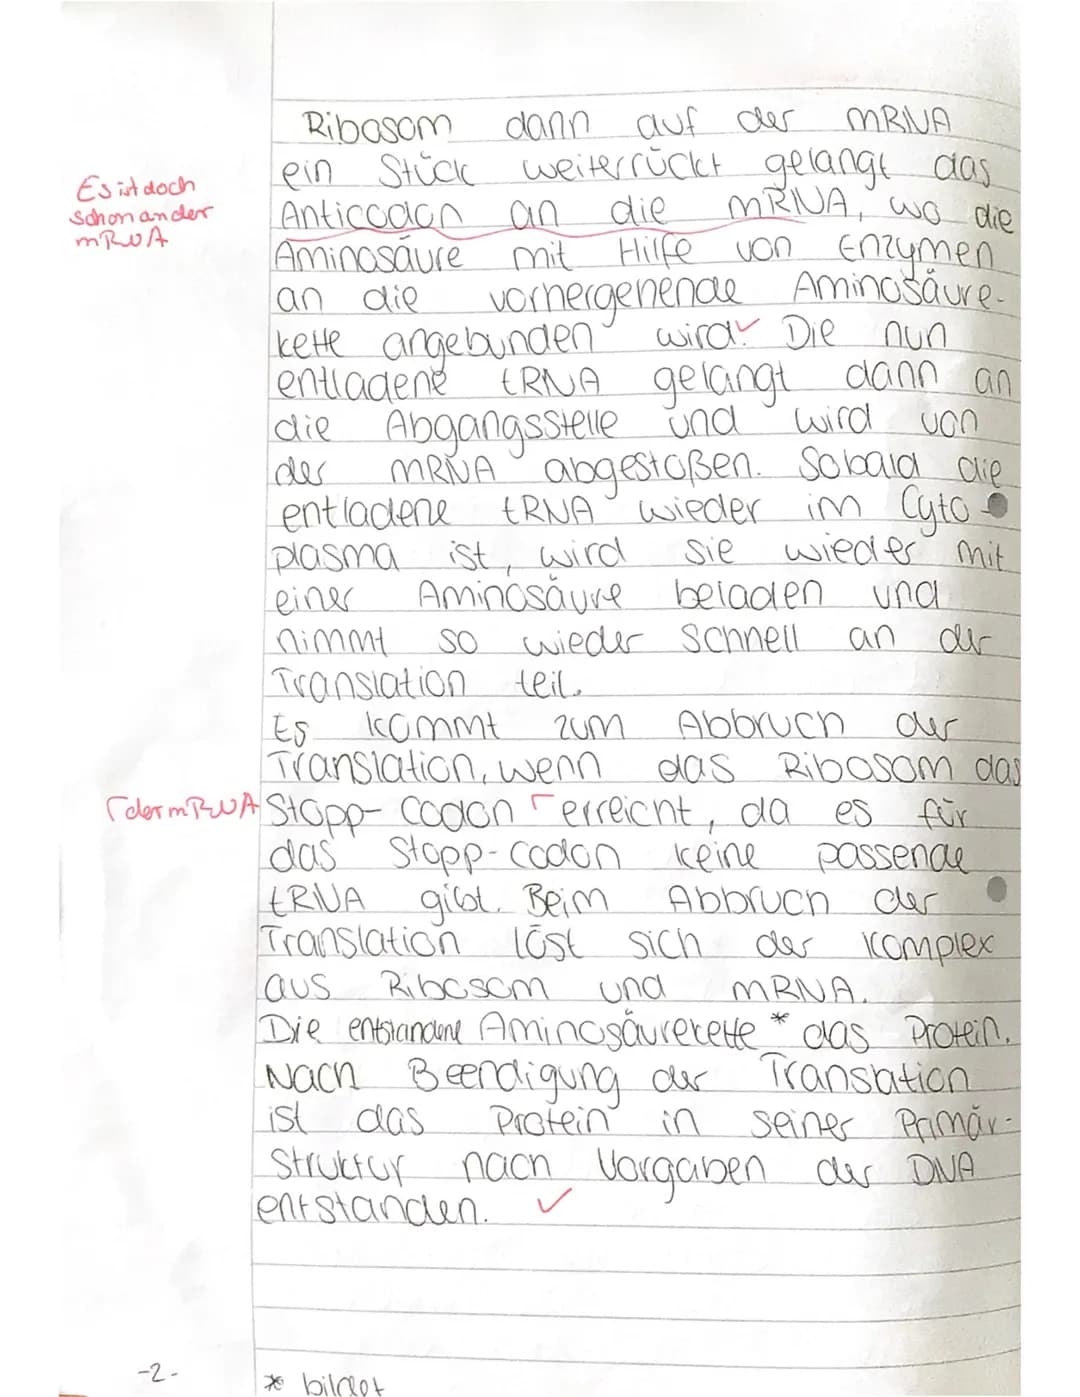 Ribosom dann auf der mRNA
ein Stück weiterrückt gelangt das
Es ist doch
schon an der
mRNA
Anticodon an die mRNA, wo die
Aminosäure mit Hilfe von Enzymen
an die vorhergehende Aminosäure-
kette angebunden wird. Die nun
entladene tRNA gelangt dann an
die Abgangsstelle und wird von
der mRNA abgestoßen. Sobald die
entladene tRNA wieder im Cyto
plasma ist, wird sie wieder mit
einer Aminosäure beladen und
nimmt so wieder schnell an der
Translation teil.
Es kommt zum Abbruch der
Translation, wenn das Ribosom das
┌ der mRNA Stopp-Codon ┌ erreicht, da es für
das Stopp-Codon keine passende
tRNA gibt. Beim Abbruch der
Translation löst sich der Komplex
aus Ribosom und mRNA.
Die entstandene Aminosäurekette * das Protein.
Nach Beendigung der Translation
ist das Protein in seiner Primär-
struktur nach Vorgaben der DNA
entstanden. ✓
-2-
* bildet